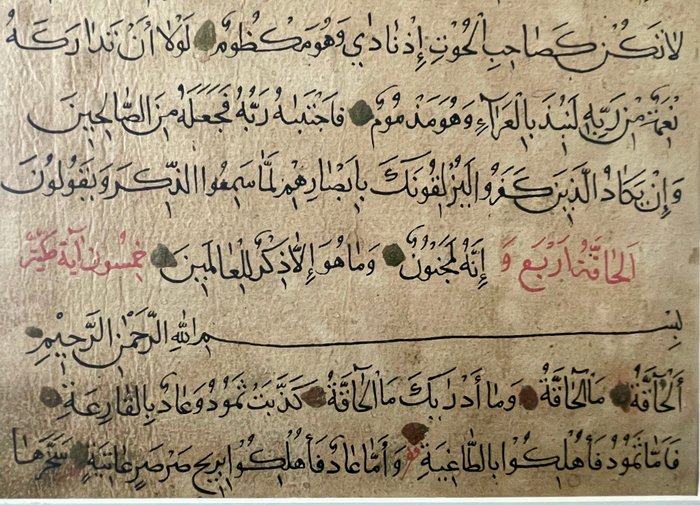 لَا تَكُنْ كَصَاحِبِ الْحُوْتِ إِذْ نَادَي وَهُوَ مَكْظُومٌ لَوْلَا أَنْ تَدَارَكَهُ
نِعْمَةٌ مِنْ رَبِّهِ لَنُبِذَ بِالْعَرَآءِ وَهُوَ مَذْمُومٌ فَاجْتَبَاهُ رَبُّهُ فَجَعَلَهُ مِنَ الصَّالِحِينَ
وَإِنْ يَكَادُ الَّذِينَ كَفَرُوا لَيُزْلِقُونَكَ بِأَبْصَارِهِمْ لَمَّا سَمِعُوا الذِّكْرَ وَيَقُولُونَ
إِنَّهُ لَمَجْنُونٌ وَمَا هُوَ إِلَّا ذِكْرٌ لِلْعَالَمِينَ
اَلْحَاقَّةُ اَرْبَعٌ وَ خَمْسُونَ آيَةً مَكِّيَّةٌ
بِسْمِ اللّٰهِ الرَّحْمٰنِ الرَّحِيْمِ
اَلْحَاقَّةُ مَا الْحَاقَّةُ وَمَا أَدْرَاكَ مَا الْحَاقَّةُ كَذَّبَتْ ثَمُودُ وَعَادٌ بِالْقَارِعَةِ
فَاَمَّا ثَمُودُ فَأُهْلِكُوا بِالطَّاغِيَةِ وَأَمَّا عَادٌ فَأُهْلِكُوا بِرِيحٍ صَرْصَرٍ عَاتِيَةٍ سَخَّرَهَا